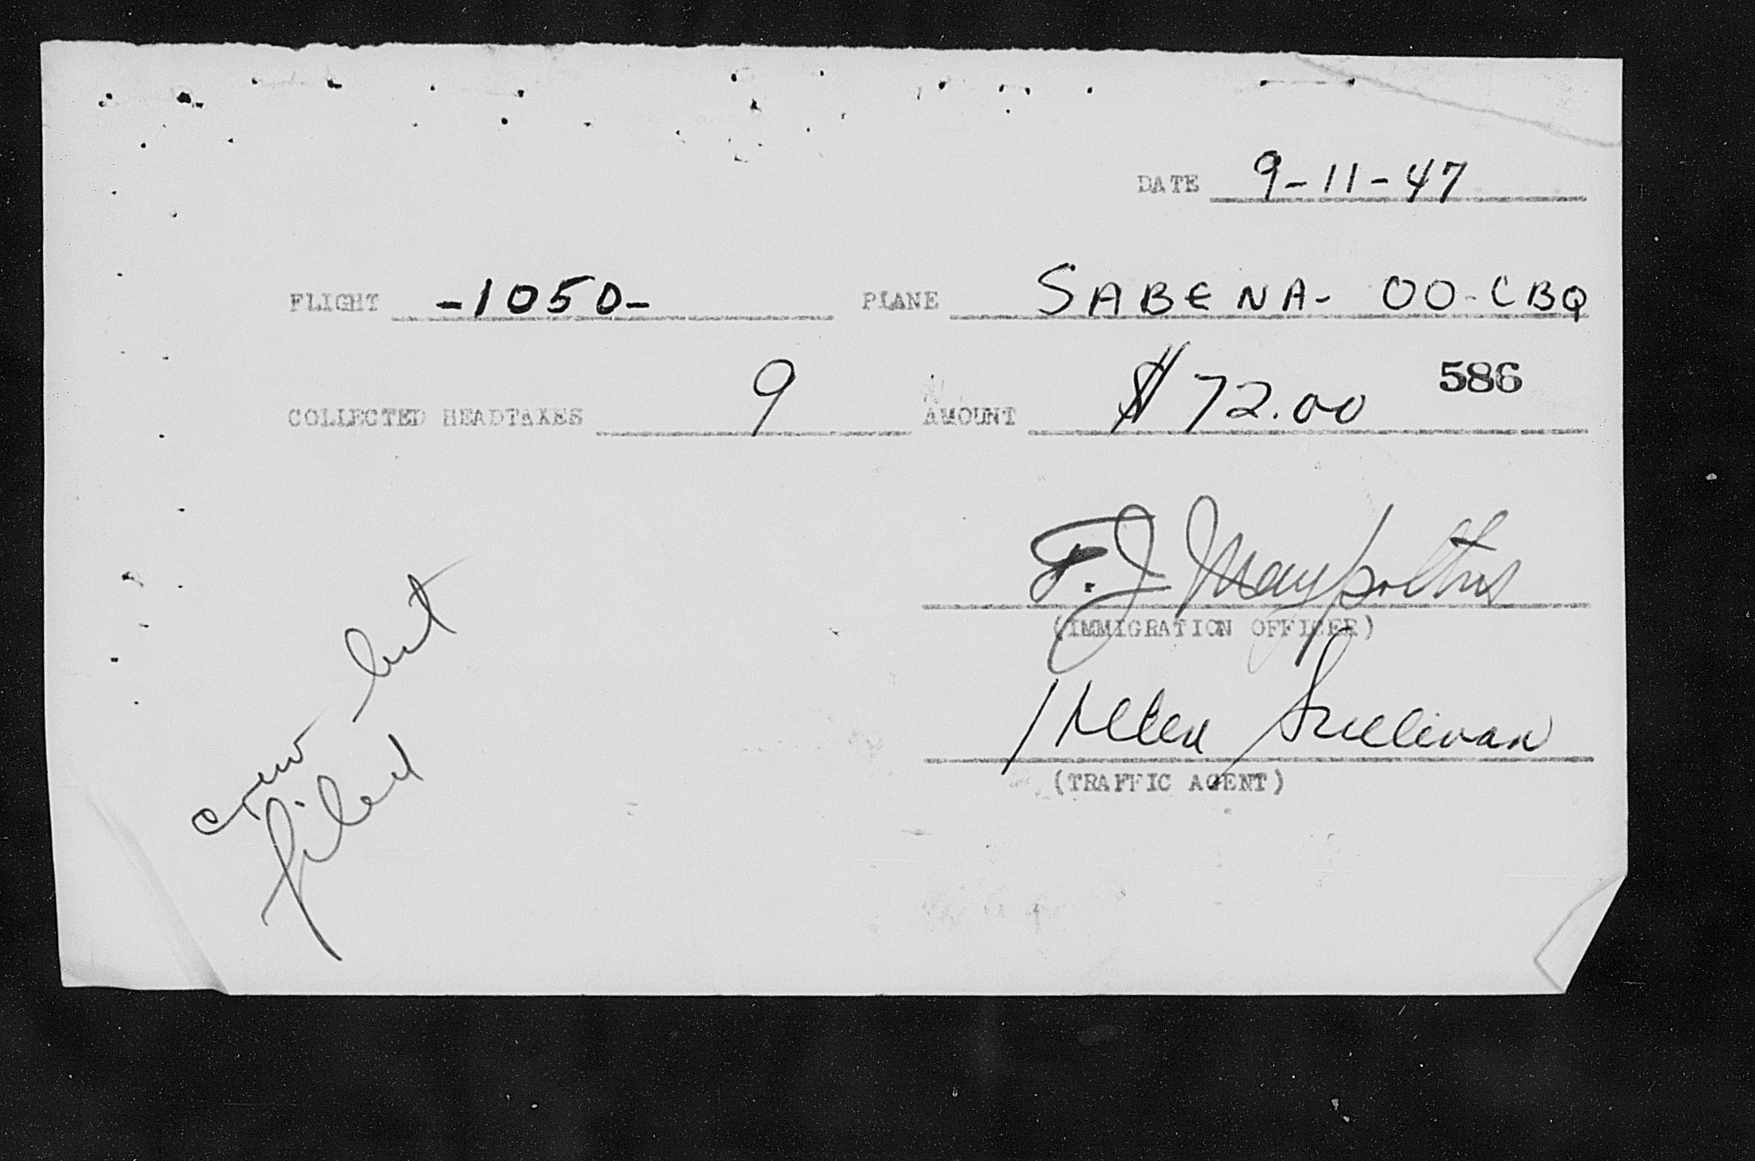 DATE 9-11-47
FLIGHT -1050- PLANE SABENA- OO-CBQ
586
COLLECTED HEADTAXES 9 AMOUNT $72.00
F. J.
(IMMIGRATION OFFICER)
Helen Sullivan
(TRAFFIC AGENT)
crew list
filed